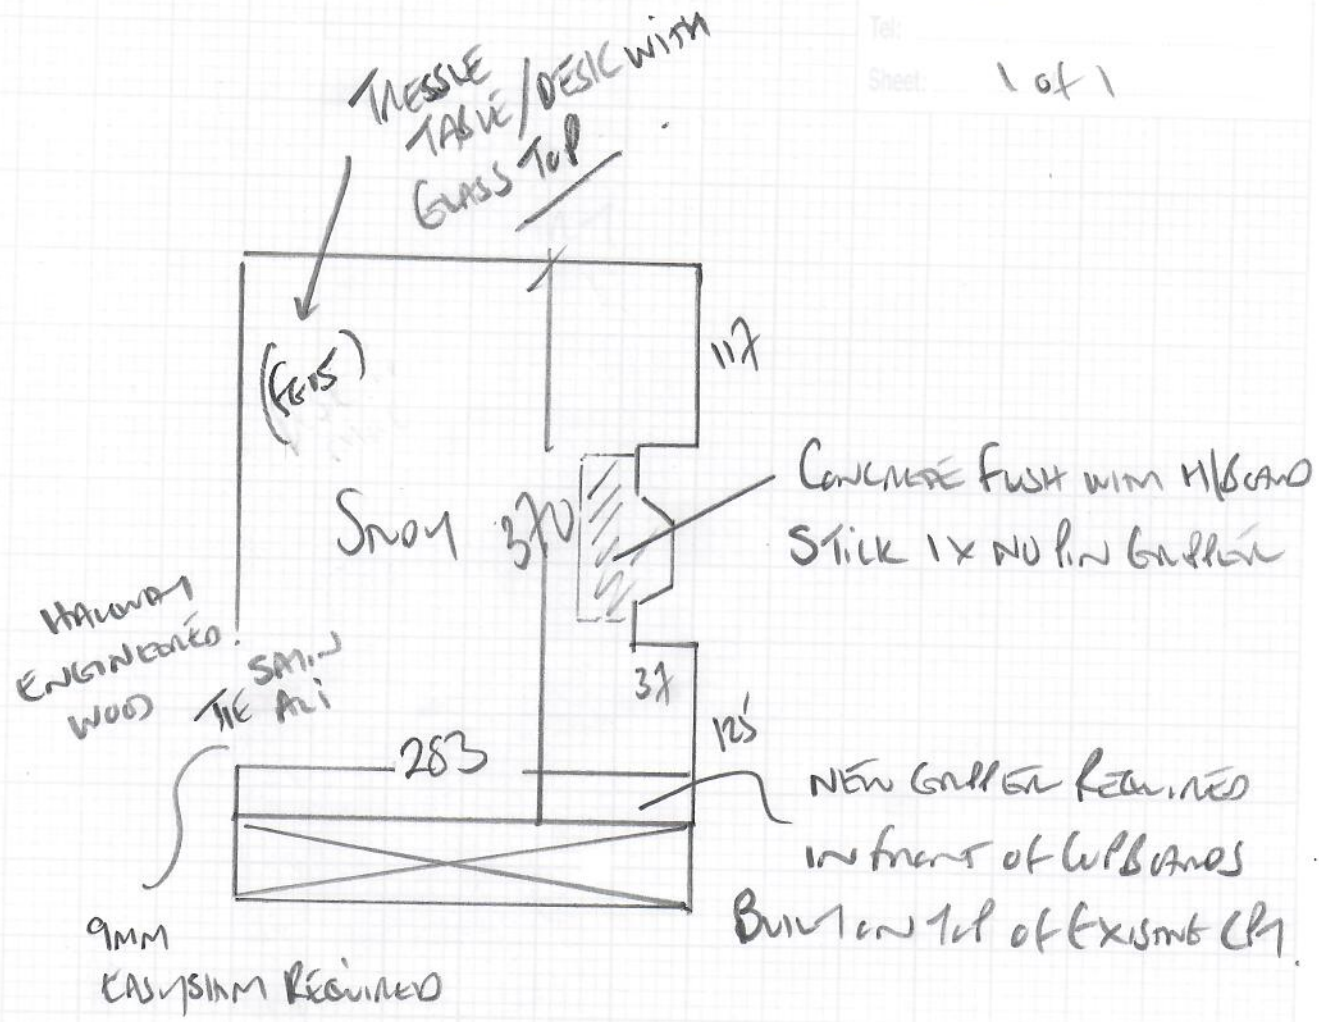 Tel:
Sheet: 1 of 1
TRESSLE
TABLE/DESK WITH
GLASS TOP
117
STUDY
370
CONCRETE FLUSH WITH H/BOARD
STICK 1X NO PIN GRIPPER
HALLWAY
ENGINEERED
WOOD
SATIN
ALI
37
125
283
NEW GRIPPER REQUIRED
IN FRONT OF CUPBOARDS
BUILT ON TOP OF EXISTING CPT.
9MM
EASYSHIM REQUIRED